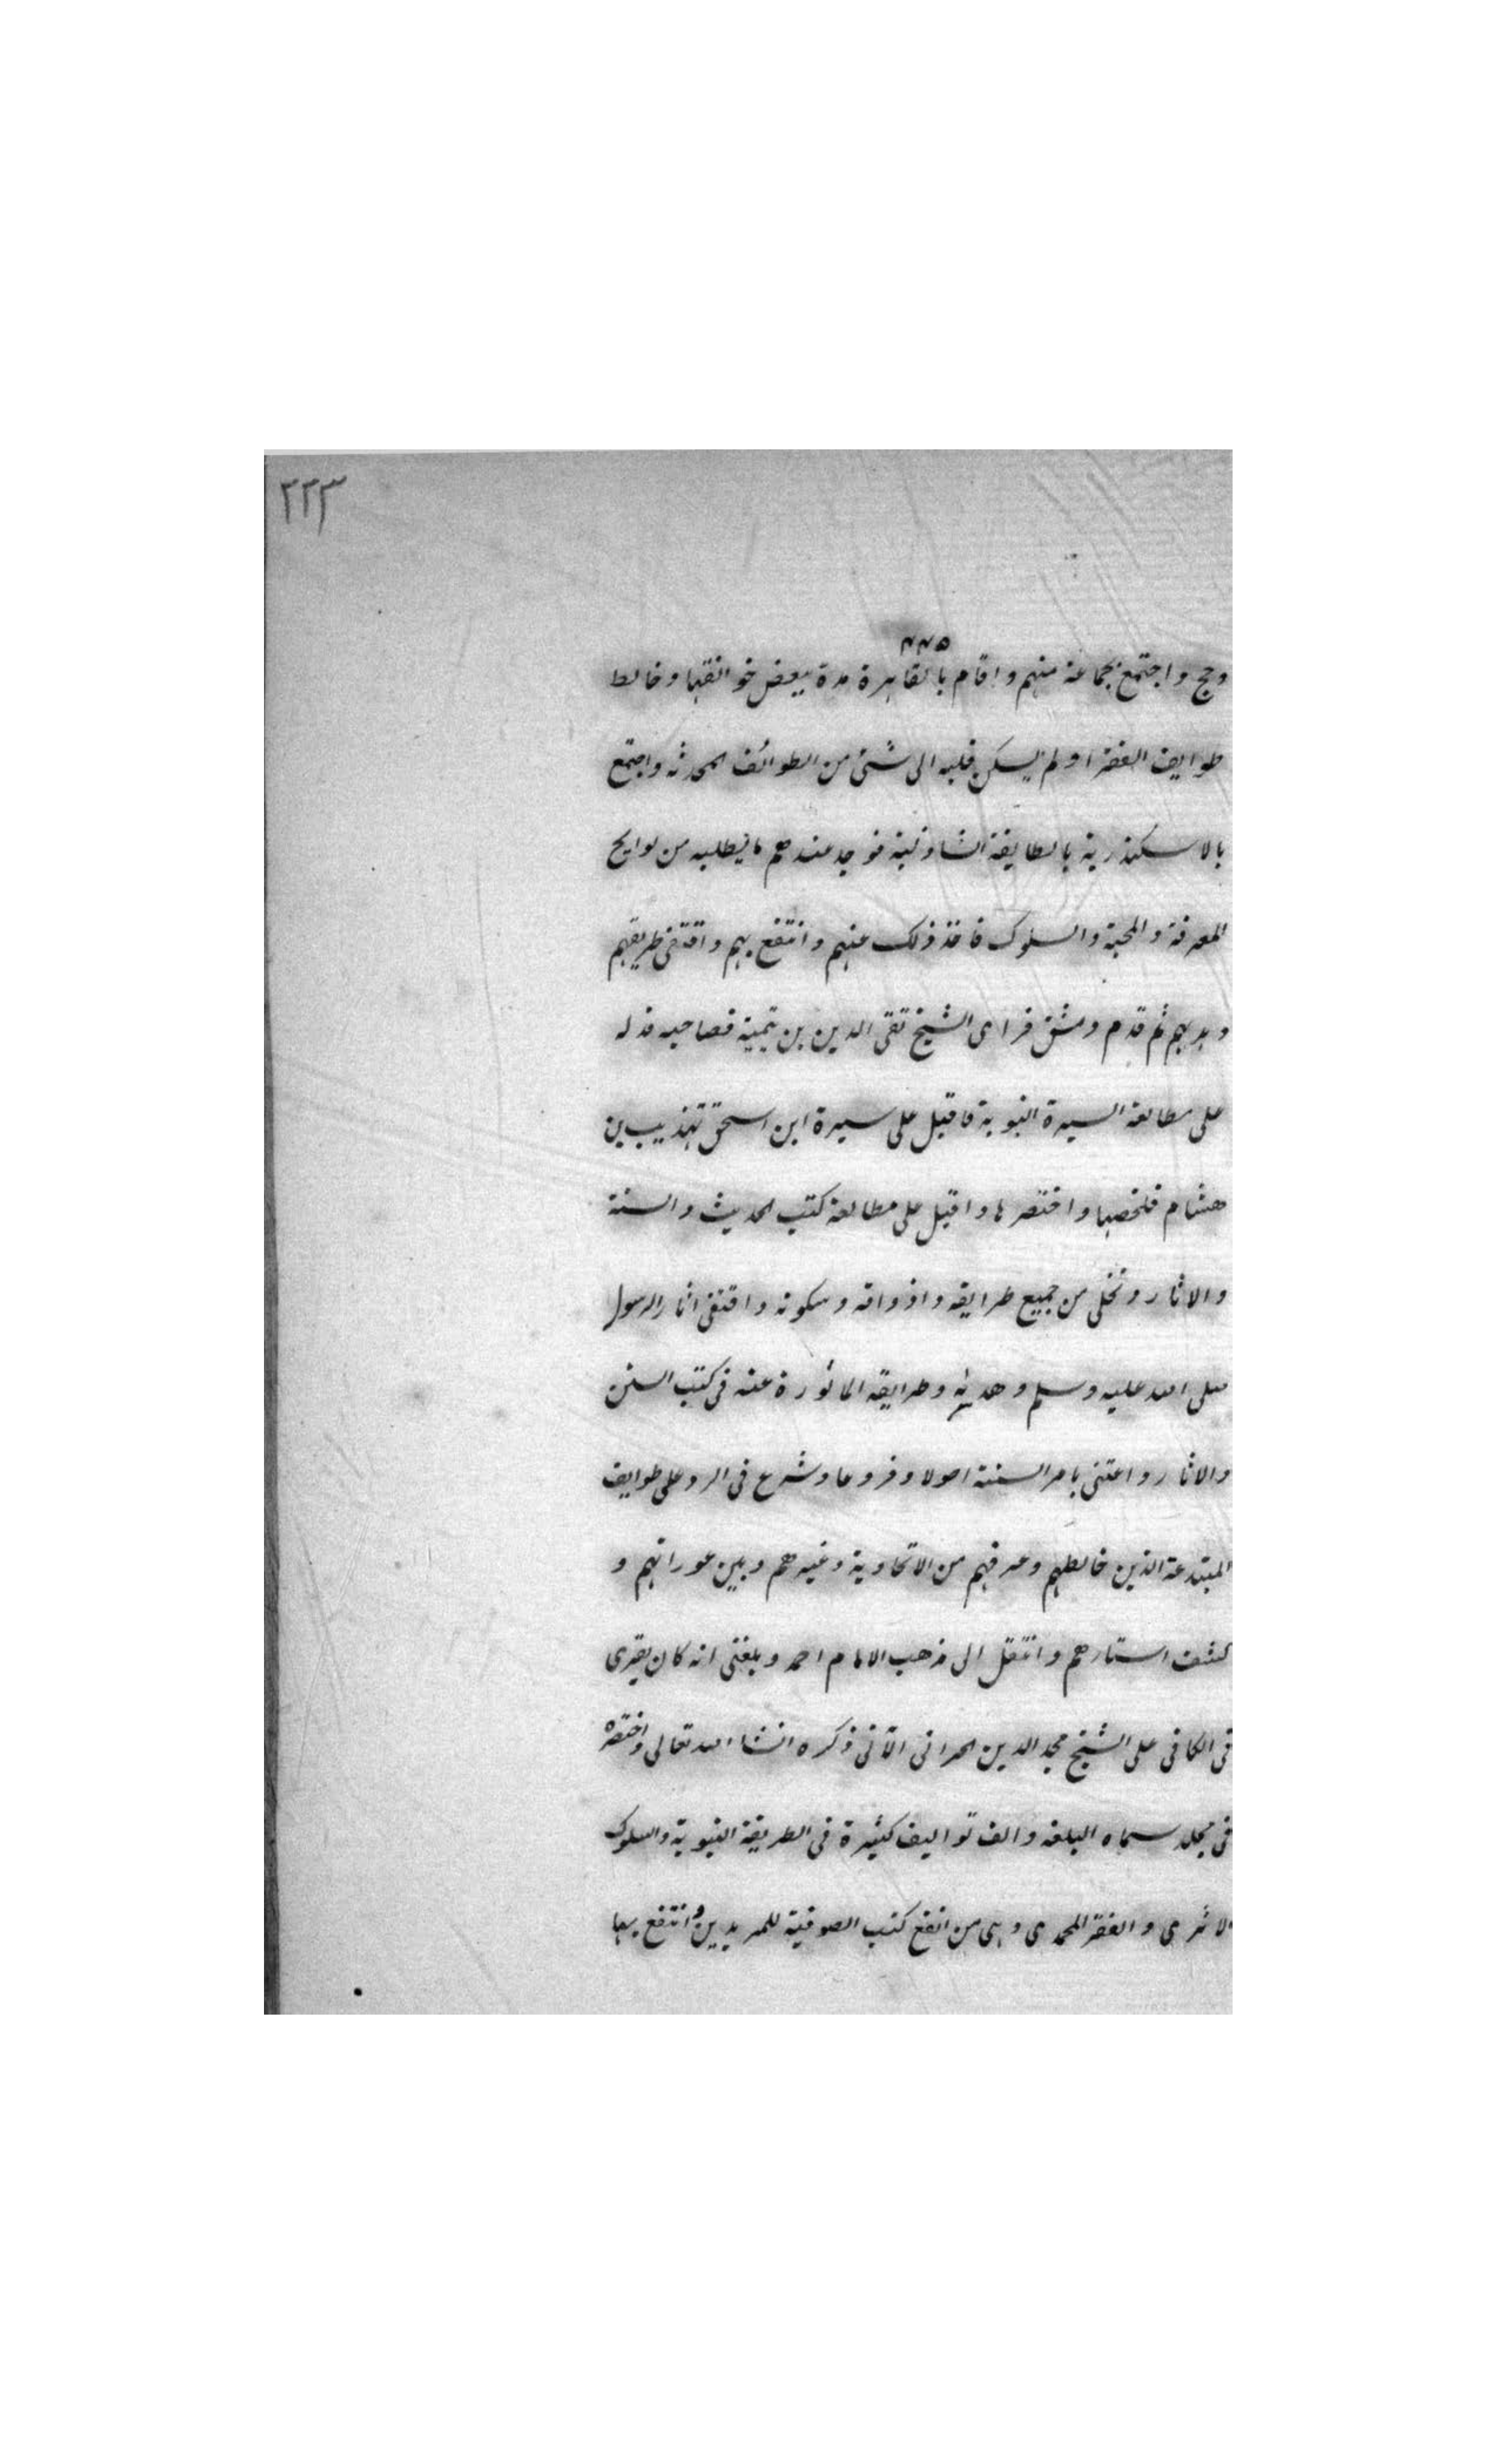 ٢٢٣
٤٤٥
وحج واجتمع بجماعة منهم واقام بالقاهرة مدة ببعض خوانقها وخالط
طوايف الفقرا ولم يسكن قلبه الى شئ من الطوائف المحدثه واجتمع
بالاسكندرية بالطايفة الشاذلية فوجد عندهم ما يطلبه من لوايح
المعرفة والمحبة والسلوك فاخذ ذلك عنهم وانتفع بهم واقتفى طريقهم
وهديهم ثم قدم دمشق فراى الشيخ تقى الدين بن تيمية فصاحبه فدله
على مطالعة السيرة النبوية فاقبل على سيرة ابن اسحق تهذيب بن
هشام فلخصها واختصرها واقبل على مطالعة كتب الحديث والسنة
والاثار وتخلى من جميع طرايقه واذواقه وسكونه واقتفى اثار الرسول
صلى الله عليه وسلم وهديه وطرايقه الماثورة عنه فى كتب السنن
والاثار واعتنى بامر السنة اصولا وفروعا وشرع فى الرد على طوايف
المبتدعة الذين خالطهم وعرفهم من الاتحادية وغيرهم وبين عوراتهم و
كشف استارهم وانتقل الى مذهب الامام احمد وبلغنى انه كان يقرى
فى الكافى على الشيخ مجد الدين الحرانى الآتى ذكره انشا الله تعالى واختصره
فى مجلد سماه البلغة والف تواليف كثيرة فى الطريقة النبوية والسلوك
الاثرى والفقر المحمدى وهى من انفع كتب الصوفية للمريدين وانتفع بها